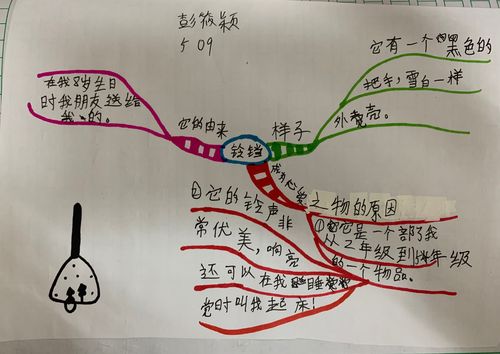 彭筱颖
509
它有一个黑色的
把手,雪白一样
外壳。
样子
铃铛
它的由来
在我8岁生日
时我朋友送给
我的。
成为心爱之物的原因
①它是一个陪了我
从2年级到4年级
的一个物品。
②它的铃声非
常优美,响亮
还可以在我睡
觉时叫我起床!